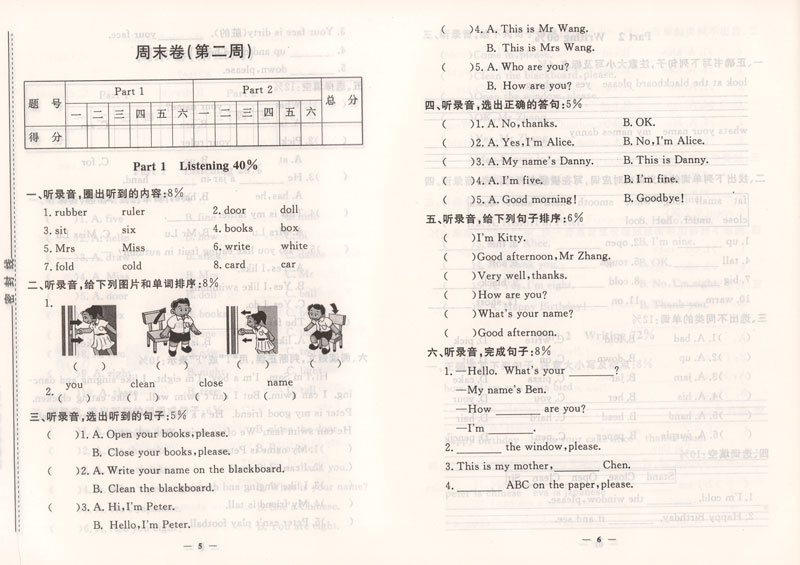 周末卷(第二周)
题 号 Part 1 Part 2 总 分
一 二 三 四 五 六 一 二 三 四 五 六
得 分
Part 1 Listening 40%
一、听录音,圈出听到的内容:8%
1. rubber ruler 2. door doll
3. sit six 4. books box
5. Mrs Miss 6. write white
7. fold cold 8. card car
二、听录音,给下列图片和单词排序:8%
1.
( ) ( ) ( ) ( )
2. you clean close name
( ) ( ) ( ) ( )
三、听录音,选出听到的句子:5%
( )1. A. Open your books,please.
B. Close your books,please.
( )2. A. Write your name on the blackboard.
B. Clean the blackboard.
( )3. A. Hi,I'm Peter.
B. Hello,I'm Peter.
— 5 —
密 封 线
( )4. A. This is Mr Wang.
B. This is Mrs Wang.
( )5. A. Who are you?
B. How are you?
四、听录音,选出正确的答句:5%
( )1. A. No,thanks. B. OK.
( )2. A. Yes,I'm Alice. B. No,I'm Alice.
( )3. A. My name's Danny. B. This is Danny.
( )4. A. I'm five. B. I'm fine.
( )5. A. Good morning! B. Goodbye!
五、听录音,给下列句子排序:6%
( )I'm Kitty.
( )Good afternoon,Mr Zhang.
( )Very well,thanks.
( )How are you?
( )What's your name?
( )Good afternoon.
六、听录音,完成句子:8%
1. —Hello. What's your ________?
—My name's Ben.
—How ________ are you?
—I'm ________.
2. ________ the window,please.
3. This is my mother,________ Chen.
4. ________ ABC on the paper,please.
— 6 —